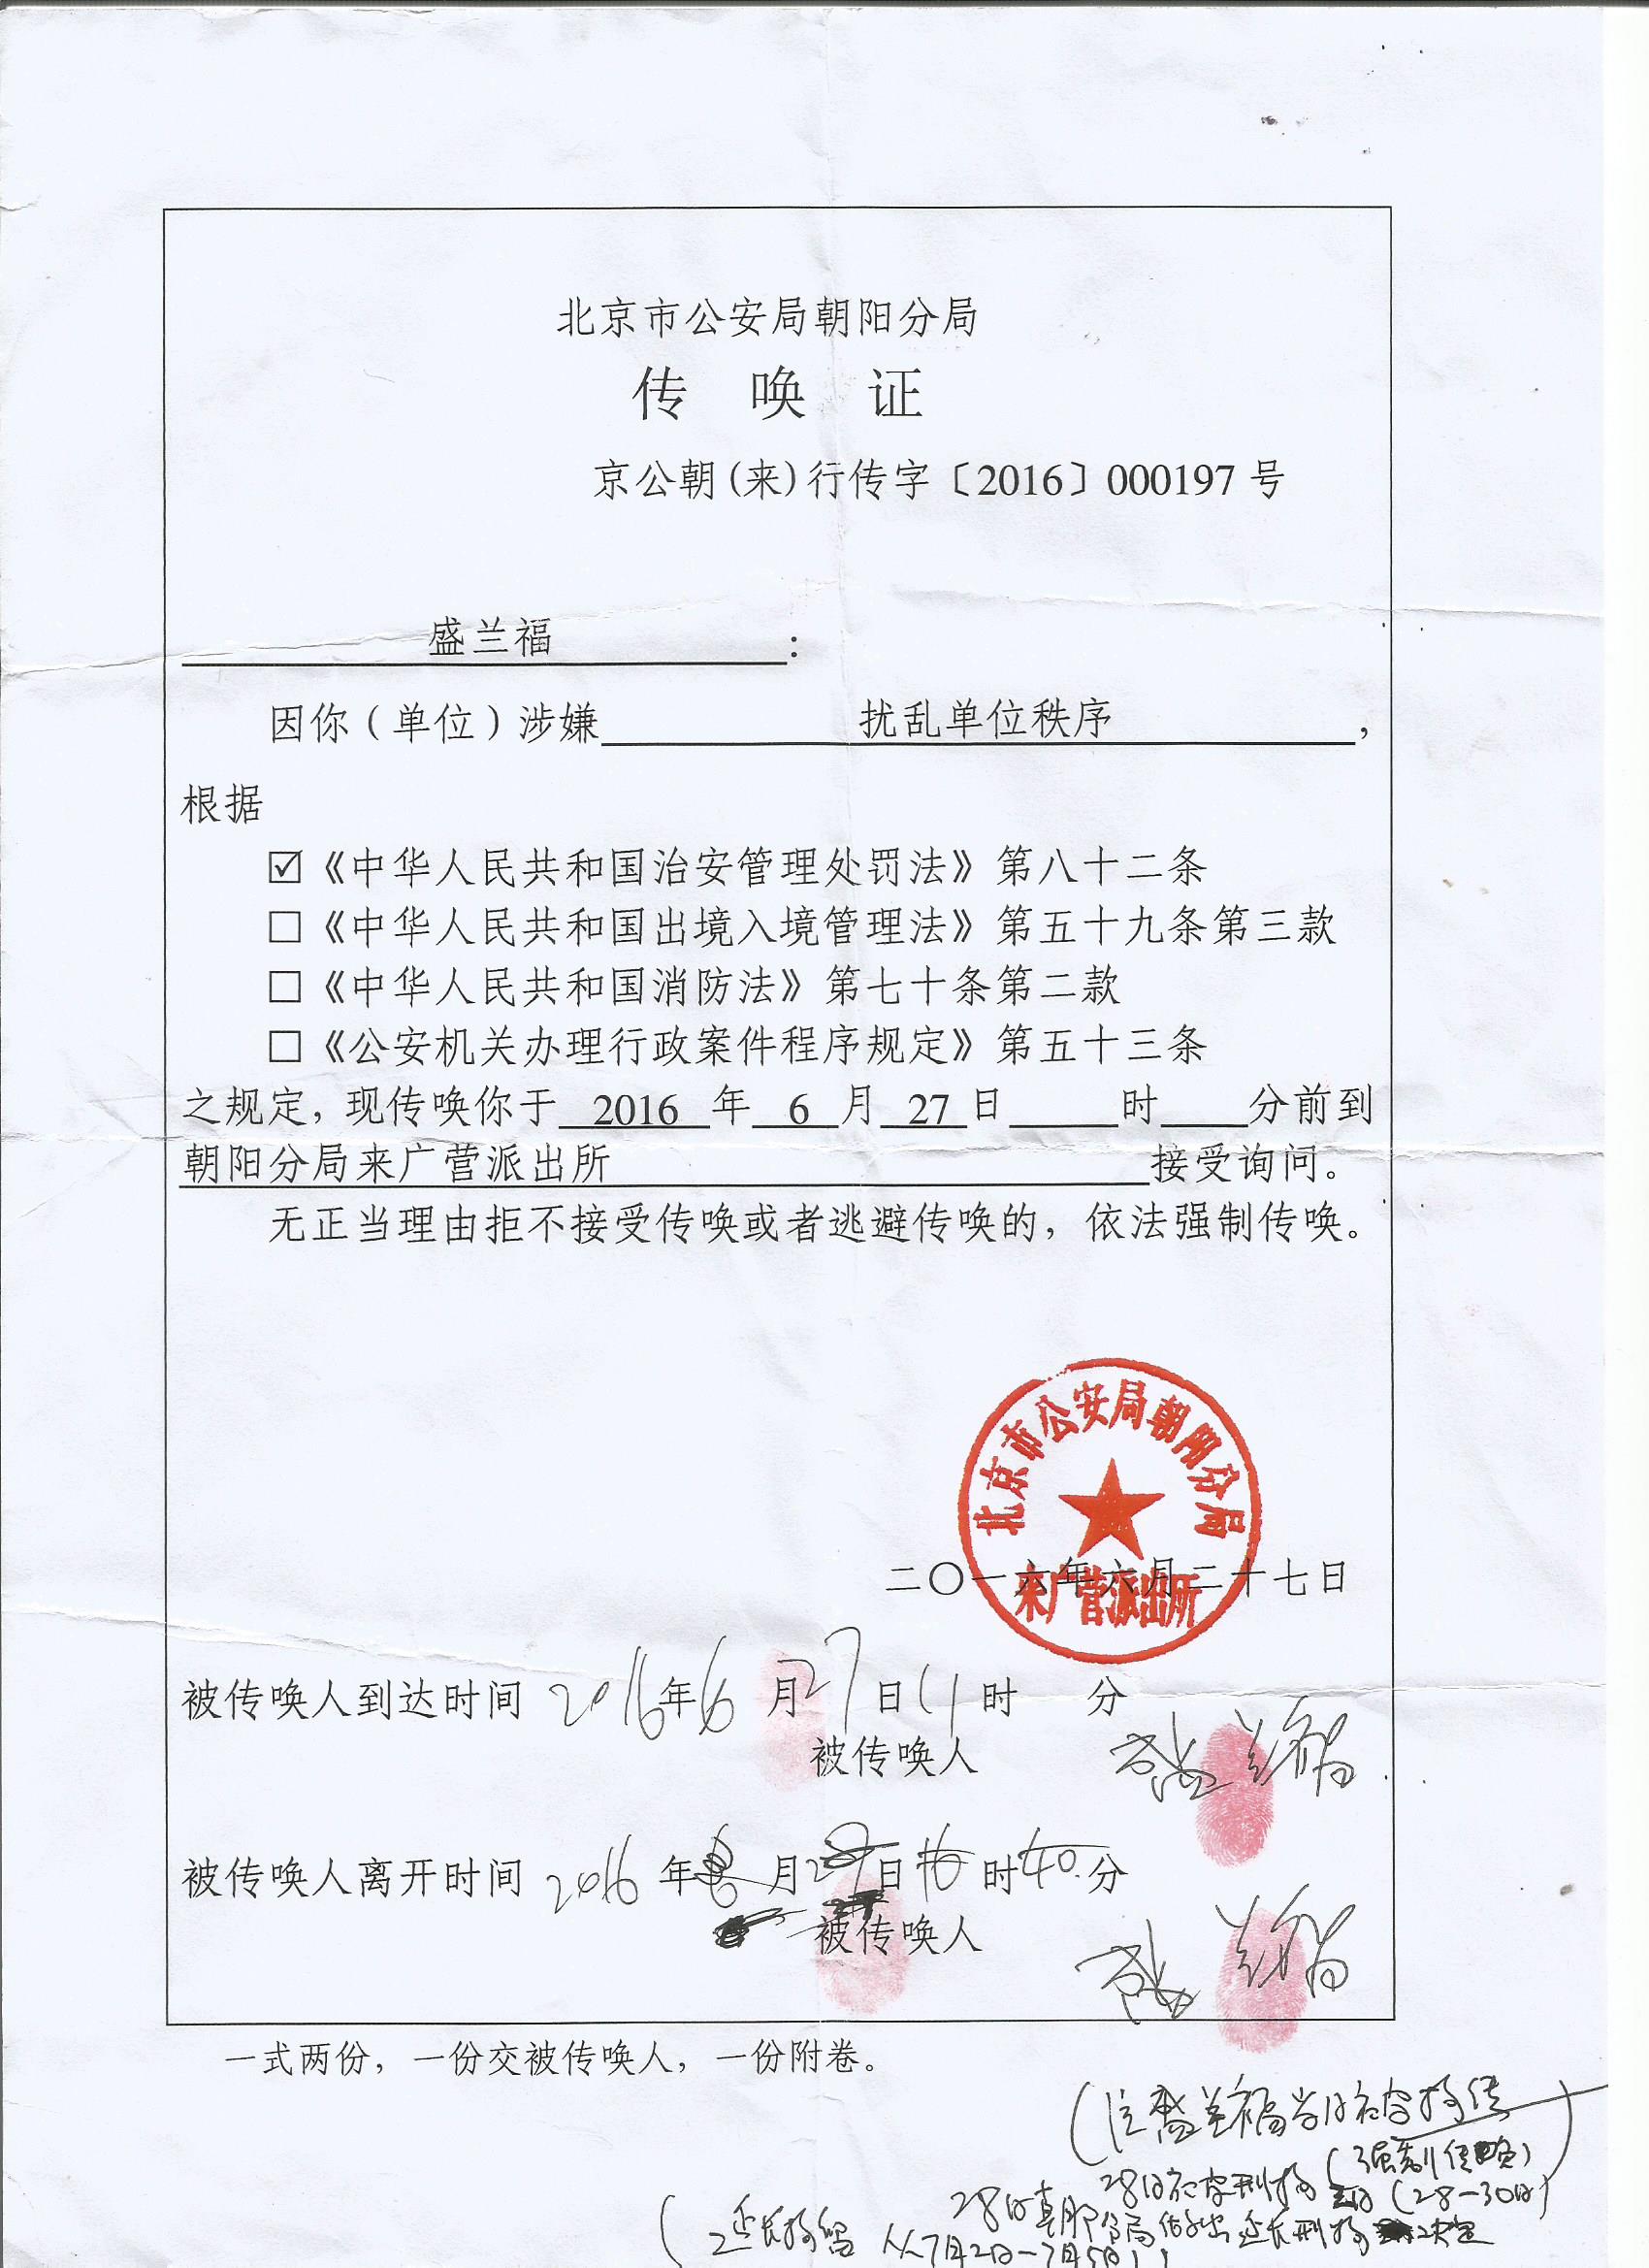 北京市公安局朝阳分局
传 唤 证
京公朝(来)行传字〔2016〕000197号
盛兰福：
因你（单位）涉嫌 扰乱单位秩序，
根据
☑《中华人民共和国治安管理处罚法》第八十二条
□《中华人民共和国出境入境管理法》第五十九条第三款
□《中华人民共和国消防法》第七十条第二款
□《公安机关办理行政案件程序规定》第五十三条
之规定，现传唤你于 2016 年 6 月 27 日 时 分前到
朝阳分局来广营派出所 接受询问。
无正当理由拒不接受传唤或者逃避传唤的，依法强制传唤。
北京市公安局朝阳分局
二〇一六年六月二十七日
来广营派出所
被传唤人到达时间 2016年6月27日11时 分
被传唤人 盛兰福
被传唤人离开时间 2016年 月 日 时40分
被传唤人 盛兰福
一式两份，一份交被传唤人，一份附卷。
盛兰福当日
(强制传唤)
28日 刑拘 (28-30日)
28日 分局 延长刑拘
延长拘留 从7月2日-7月5日